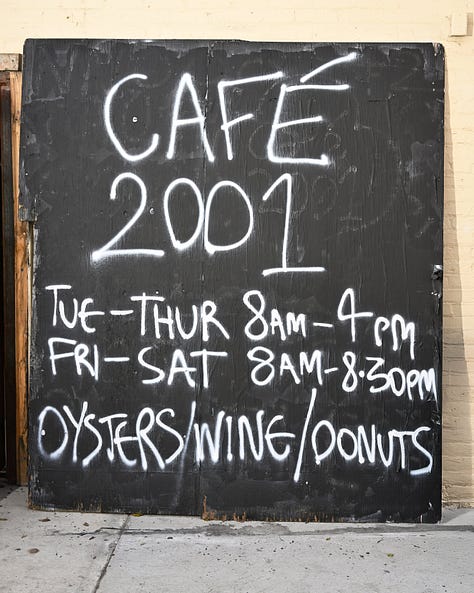 CAFÉ
2001
TUE-THUR 8AM-4PM
FRI-SAT 8AM-8.30PM
OYSTERS/WINE/DONUTS